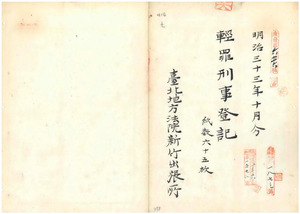 明治三十三年十月分
輕罪刑事登記
紙數六十五枚
臺北地方法院新竹出張所